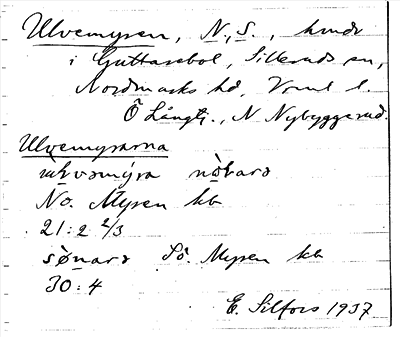 Ulvemyren, N., S., kmdr
i Guttarsbol, Silleruds sn,
Nordmarks hd, Vrml l.
Ö Långt., N Nybyggerud.
Ulvemyrarna
No. Myren kb
21:2 2/3
sønars Sö. Myren kb
30:4
E. Silfors 1937